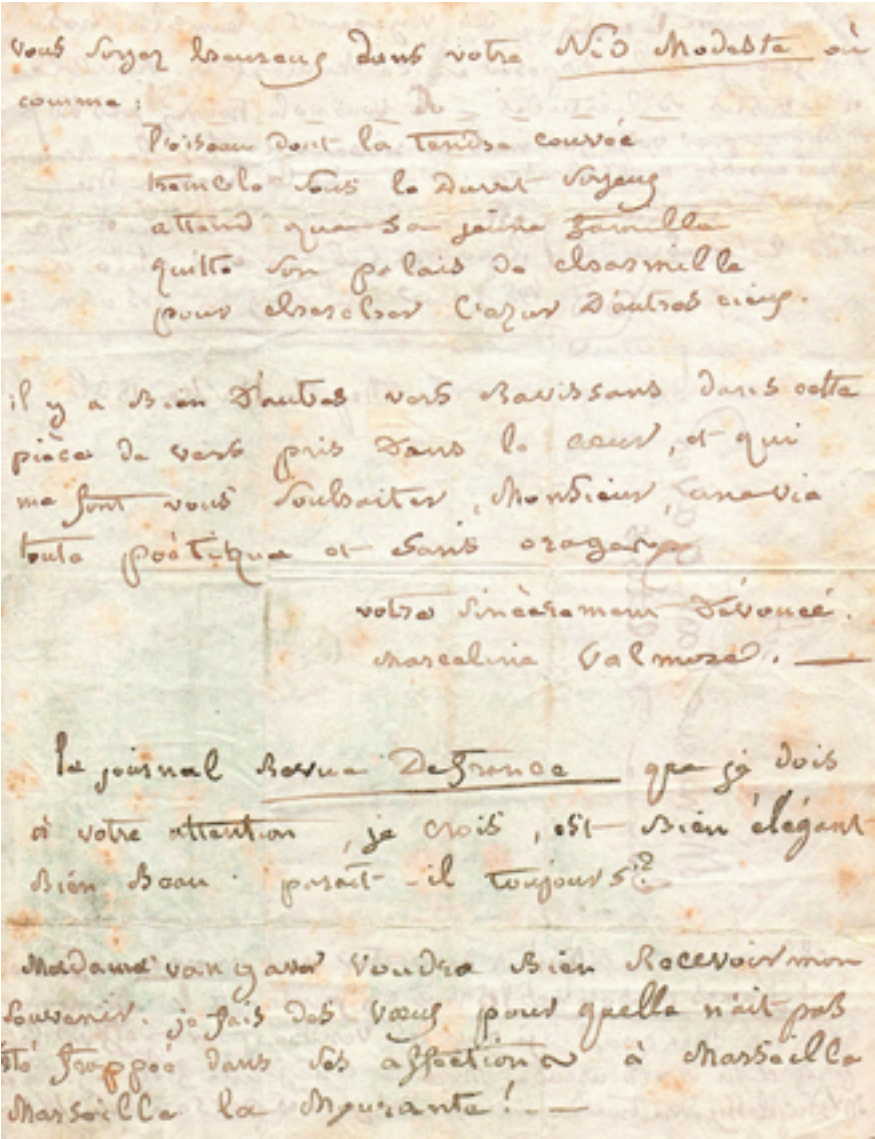 vous soyez heureux dans votre Nid Modeste où
comme :
l'oiseau dont la tendre couvée
tremble sous le Duvet soyeux
attend que sa jeune famille
quitte son palais de charmille
pour chercher l'azur D'autres cieux.
il y a Bien D'autres vers Ravissans dans cette
pièce de vers pris Dans le cœur, et qui
me font vous souhaiter, Monsieur, une vie
toute poëtique et sans orages
votre sincèrement Dévouée.
Marceline Valmore. —
le journal Revue De france que je dois
à votre attention, je crois, est Bien élégant
Bien Beau. paraît-il toujours ?
Madame van gaver voudra Bien Recevoir mon
souvenir. je fais des vœux pour quelle n'ait pas
été frappée dans ses affections à Marseille
Marseille la Mourante ! —